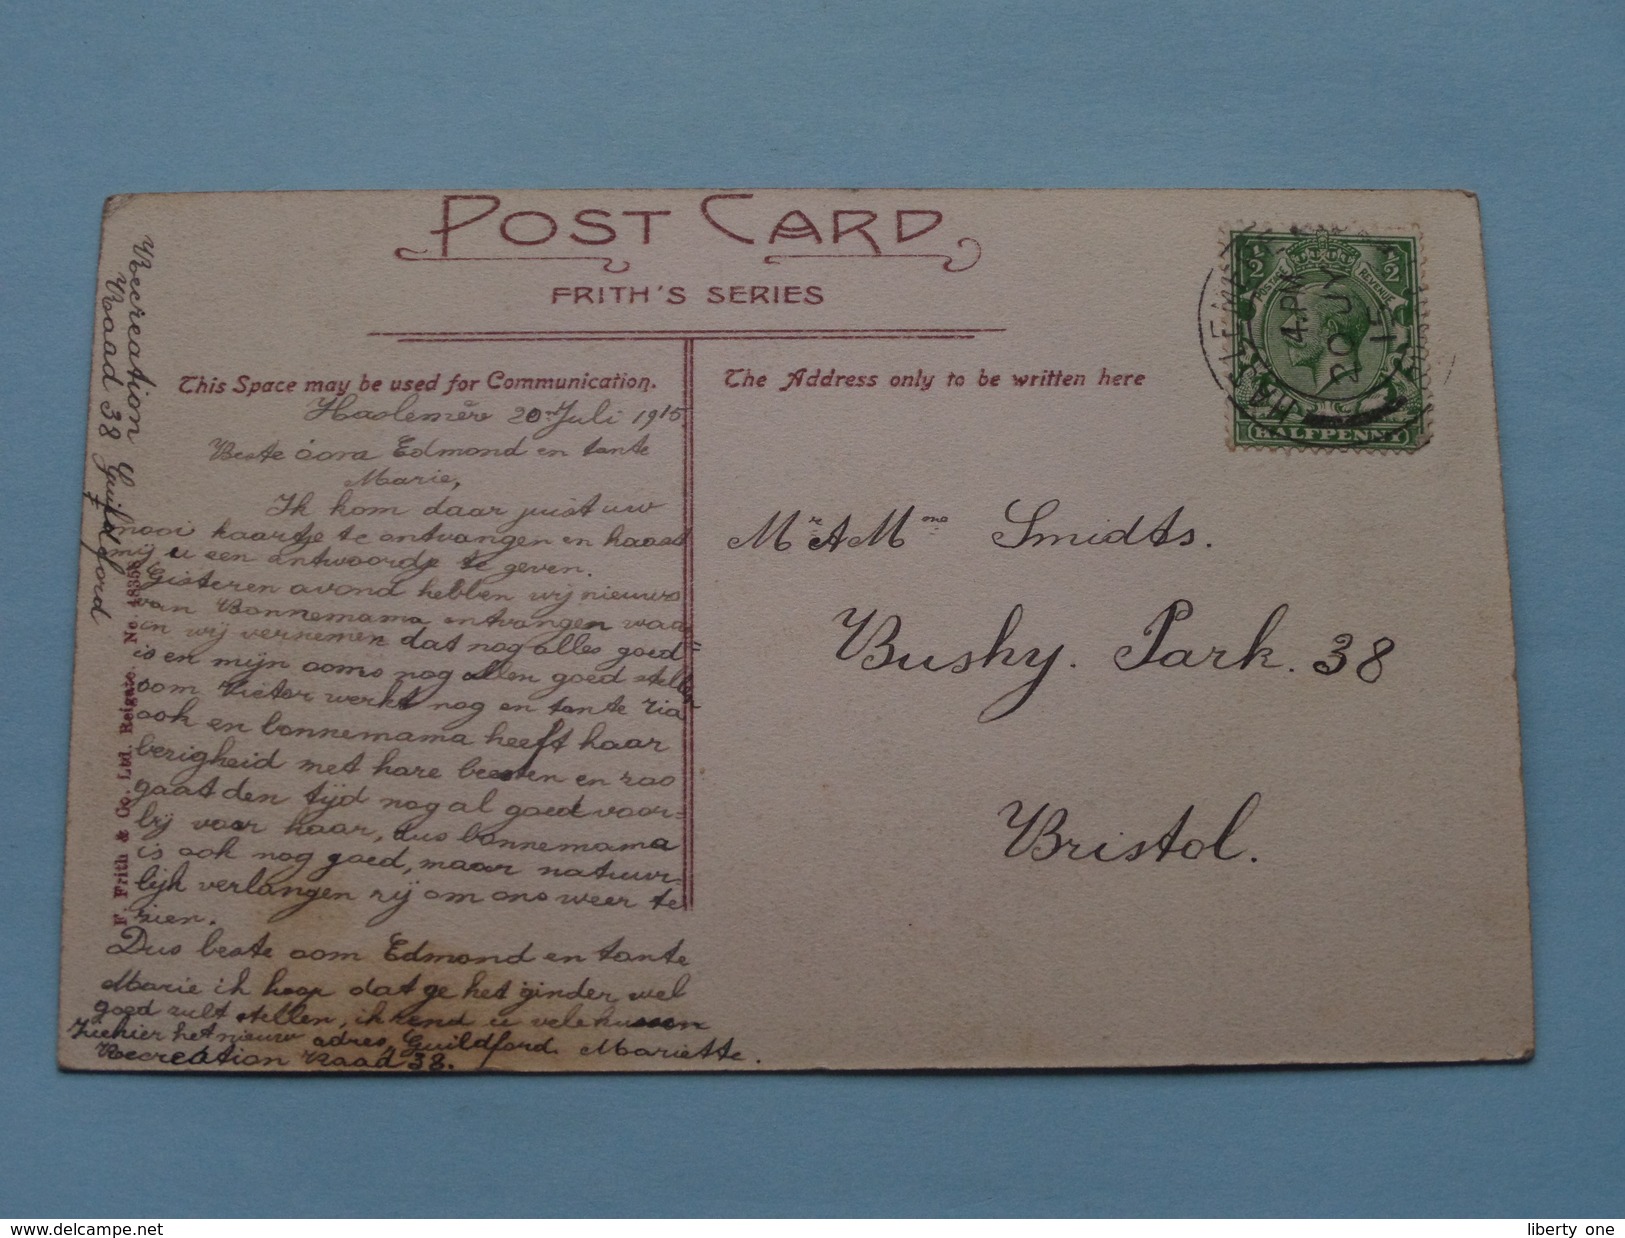 POST CARD
FRITH'S SERIES
This Space may be used for Communication.
The Address only to be written here
Haslemere 20 Juli 1915
Beste oom Edmond en tante
Marie,
Ik kom daar juist uw
mooi kaartje te ontvangen en haast
mij u een antwoordje te geven.
Gisteren avond hebben wij nieuws
van Bonnemama ontvangen waar
in wij vernemen dat nog alles goed
is en mijn ooms nog allen goed stellen
oom Victor werkt nog en tante ria
ook en bonnemama heeft haar
bezigheid met hare beesten en zoo
gaat den tijd nog al goed voor-
bij voor haar, dus bonnemama
is ook nog goed, maar natuur-
lijk verlangen zij om ons weer te
zien.
Dus beste oom Edmond en tante
Marie ik hoop dat ge het ginder wel
goed zult stellen, ik zend u vele kussen
Ziehier het nieuw adres, Guildford. Mariette.
Recreation Raad 38.
Recreation
Raad 38 Guildford
F. Frith & Co. Ltd. Reigate. No.
HASLEMERE
4.PM
20 JY
15
POSTAGE REVENUE
½ ½
HALFPENNY
Mr & Mme Smidts.
Bushy. Park. 38
Bristol.
delcampe.net
liberty one